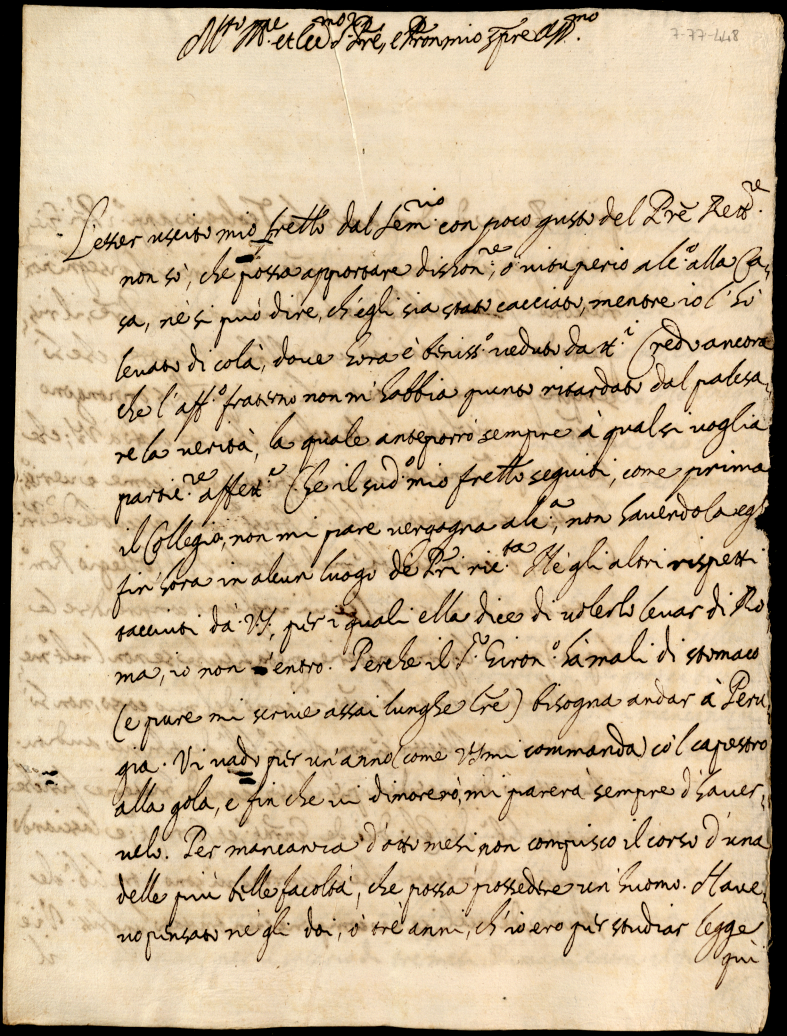 7-77-448
M.to Ill.re et Ecc.mo S.r P.re, e Pron mio sempre Oss.mo
L'esser uscito mio fretto dal Sem.rio con poco gusto del Prē Rett.re
non sò, che possa apportare dishon.re, ò vituperio alc.o alla Ca,
sa, nè si può dire, ch'egli sia stato cacciato, mentre io l'hò
levato di colà, dove hora è beniss.o veduto da tt.i Credo ancora
che l'aff.o fraterno non m'habbia punto ritardato dal palesa,
re la verità, la quale anteporrò sempre à qualsivoglia
partic.re affett.e Che il sud.o mio fretto seguiti, come prima
il Collegio, non mi pare vergogna alc.a, non havendola egli
fin'hora in alcun luogo de Prī ric.ta Nè gli altri rispetti
tacciuti da V.S., per i quali ella dice di volerlo levar di Ro
ma, io non c'entro. Perche il S.r Giron.o hà mali di stomaco
(e pure mi scrive assai lunghe lrē) bisogna andar à Peru
gia. Vi vado per un'anno (come VS mi commanda) cò'l capestro
alla gola, e fin che vi dimorerò, mi parerà sempre d'haver,
velo. Per mancanza d'otto mesi non compisco il corso d'una
delle più belle facoltà, che possa possedere un'huomo. Have,
vo pensato nè gli doi, ò trè anni, ch'io ero per studiar legge
quì